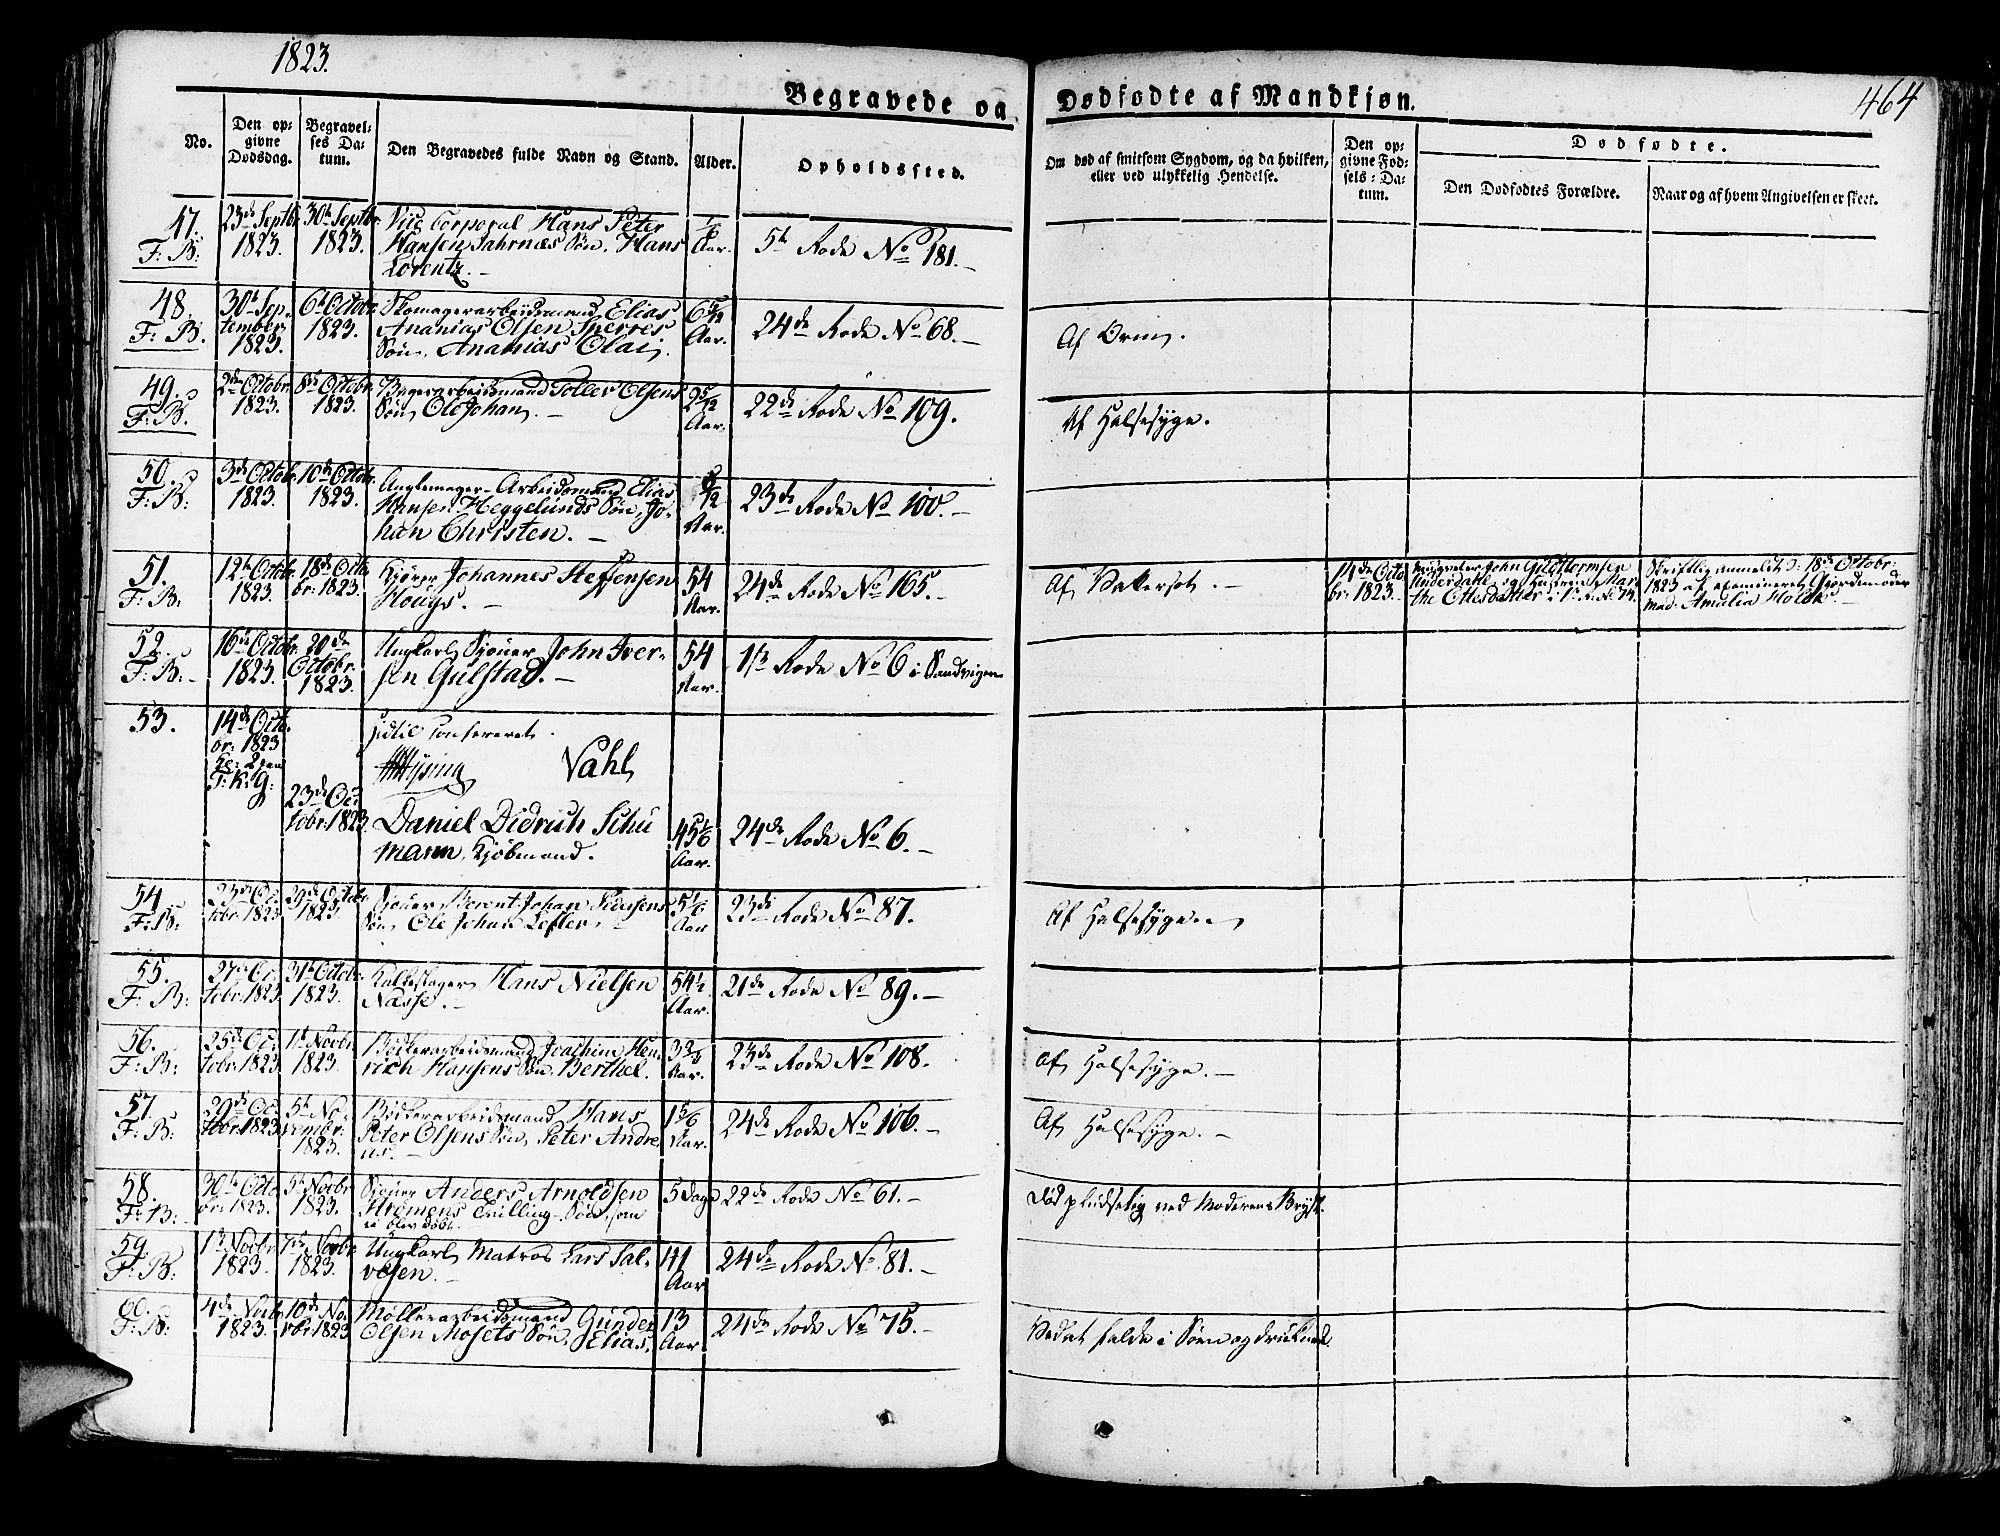 1823.
464
Begravede og Dødfødte af Mandkjøn.
No.
Den opgivne Dødsdag.
Begravelses Datum.
Den Begravedes fulde Navn og Stand.
Alder.
Opholdssted.
Om død af smitsom Sygdom, og da hvilken, eller ved ulykkelig Hendelse.
Den opgivne Fødsels-Datum.
Dødfødte.
Den Dødfødtes Forældre.
Naar og af hvem Angivelsen er skeet.
47. F: B: 23de Septbr 1823. 30te Septbr 1823. Vice Corporal Hans Peter
Hansen Jahrnæs Søn, Hans
Lorentz. —
Aar. 5te Rode No 181. —
48. F: B. 30te September 1823. 6te Octobr 1823. Skomagerarbeidsmand Elias
Ananias Olsen Sperres
Søn, Ananias Olai.
Aar. 24de Rode No 68. — Af Orm.
49. F: B. 2den Octobr. 1823. 8de Octobr. 1823. Bagerarbeidsmand Toller Olsens
Søn, Ole Johan. —
2 5/12 Aar. 22de Rode No 109. Af Halsesyge.
50. F: B: 3de Octobr. 1823. 10de Octobr. 1823. Anglemager-Arbeidsmand Elias
Hansen Heggelunds Søn, Johan Christen. —
Aar. 23de Rode No 100. —
51. F: B: 12te Octobr. 1823. 18de Octobr: 1823. Johannes Steffensen
Hougs. —
54 Aar. 24de Rode No 165. — Af Vattersot. —
14de Octobr: 1823. John Guldtormsen
1823
Amalia Holck. —
52. F: B: — 16de Octobr. 1823. 20de Octobr. 1823. Ungkarl Sjouer John Iversen Gulstad. —
54 Aar. 1ste Rode No 6 i Sandvigen
53. 14de Octobr: 1823
F: K: G:
23de Octobr: 1823. Vahl
Daniel Didrich Schumann, Kjøbmand.
45 1/6 Aar. 24de Rode No 6. —
54. F: B: 23de Octobr. 1823. 29de Octobr 1823. Sjouer Berent Johan Svensens
Søn, Ole Johan Lefler. —
5 1/6 Aar 23de Rode No 87. Af Halsesyge.
55. F: B: 27de Octobr. 1823. 31te Octobr: 1823. Hans Nielsen
Næsse. —
54 1/2 Aar. 21de Rode No 89. —
56. F: B: 25de Octobr. 1823. 1ste Novbr 1823. Bødkerarbeidsmand Joachim Henrich Hansens Søn, Berthel.
Aar. 23de Rode No 108. Af Halsesyge. —
57. F: B: 29de Octobr: 1823. 5te Novembr: 1823. Bødkerarbeidsmand Hans
Peter Olsens Søn, Peter Andreas. —
1 5/6 Aar. 24de Rode No 106. — Af Halsesyge. —
58. F: B. 30te Octobr: 1823. 5te Novbr 1823. Sjouer Anders Arnoldsen
Strømens Tvilling-Søn, som
ei blev døbt.
5 Dage 22de Rode No 61. — Død pludselig ved Moderens Bryst.
59. F: B: 1ste Novbr 1823. 7de Novbr. 1823. Ungkarl Matros Lars Salvesen. —
41 Aar 24de Rode No 81. —
60. F: B: 4de Novbr. 1823. 10de Novbr: 1823 Møllerarbeidsmand Gunder
Olsen Mosets Søn, Elias.
13 Aar 24de Rode No 75. — Vedat falde i Søen og druknede.